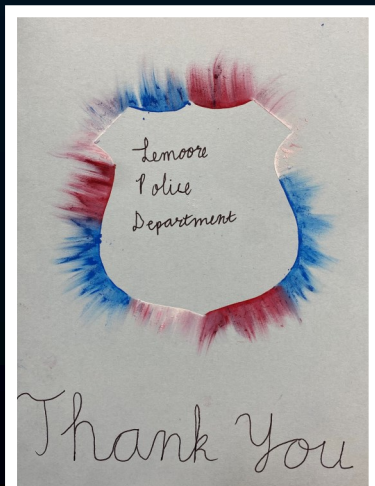 Lemoore
Police
Department
Thank You